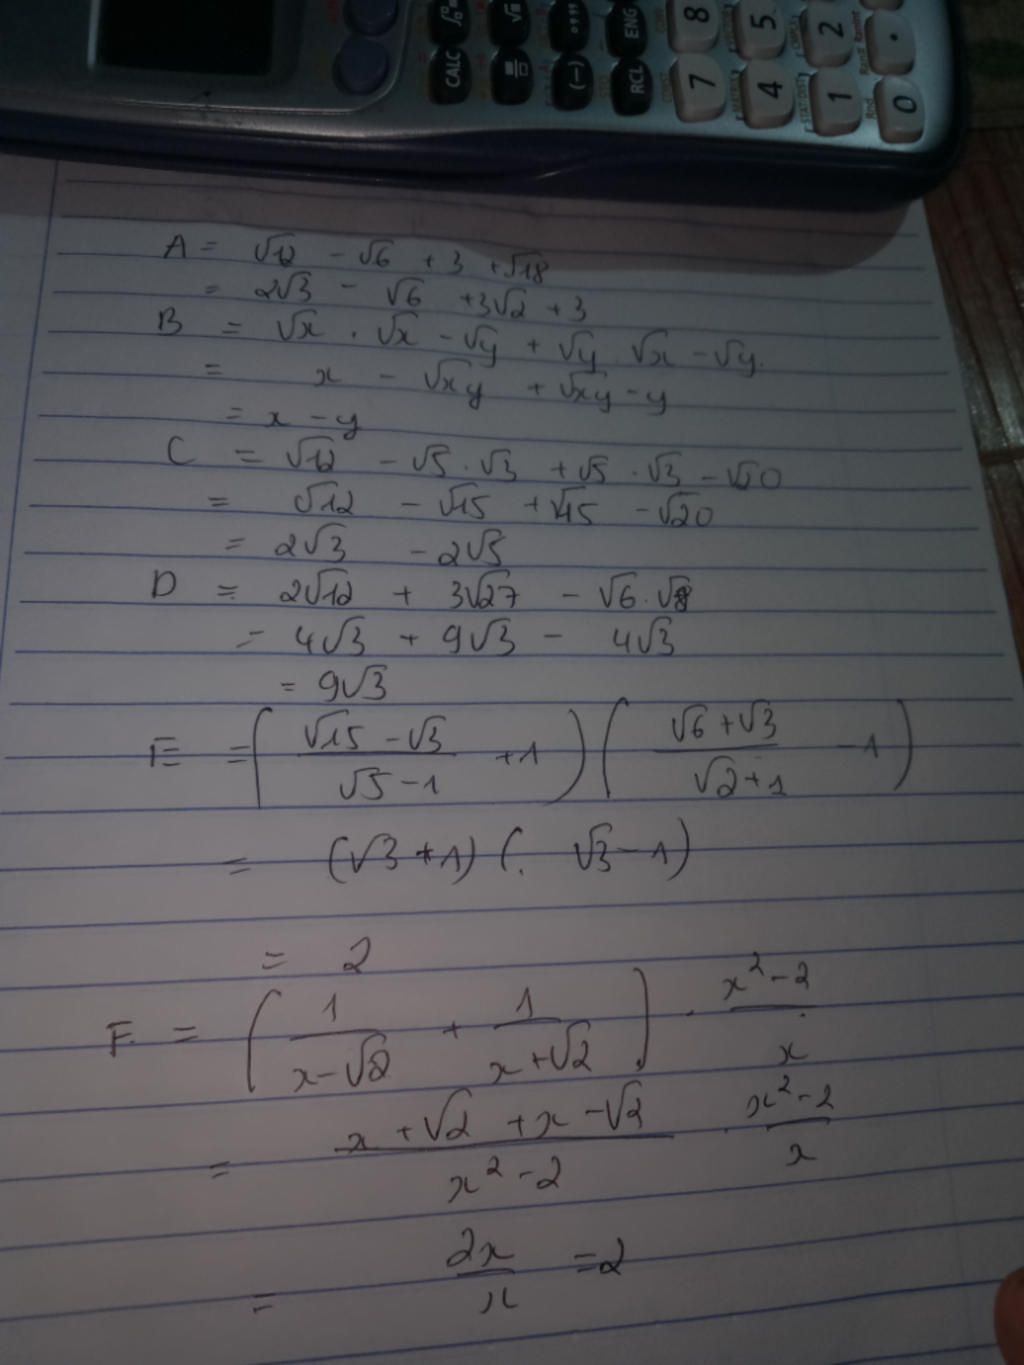 CALC (-) RCL ENG 7 8 4 5 1 2 0 .
A = √12 - √6 + 3 + √18
= 2√3 - √6 + 3√2 + 3
B = √x . √x - √y + √y . √x - √y.
= x - √xy + √xy - y
= x - y
C = √12 - √5 . √3 + √5 . √3 - √20
= √12 - √15 + √15 - √20
= 2√3 - 2√5
D = 2√12 + 3√27 - √6 . √8
= 4√3 + 9√3 - 4√3
= 9√3
E = ( (√15 - √3)/(√5 - 1) + 1 ) ( (√6 + √3)/(√2 + 1) - 1 )
= (√3 + 1) ( √3 - 1)
= 2
F = ( 1/(x - √2) + 1/(x + √2) ) . (x² - 2)/x
= (x + √2 + x - √2)/(x² - 2) . (x² - 2)/x
= 2x/x = 2